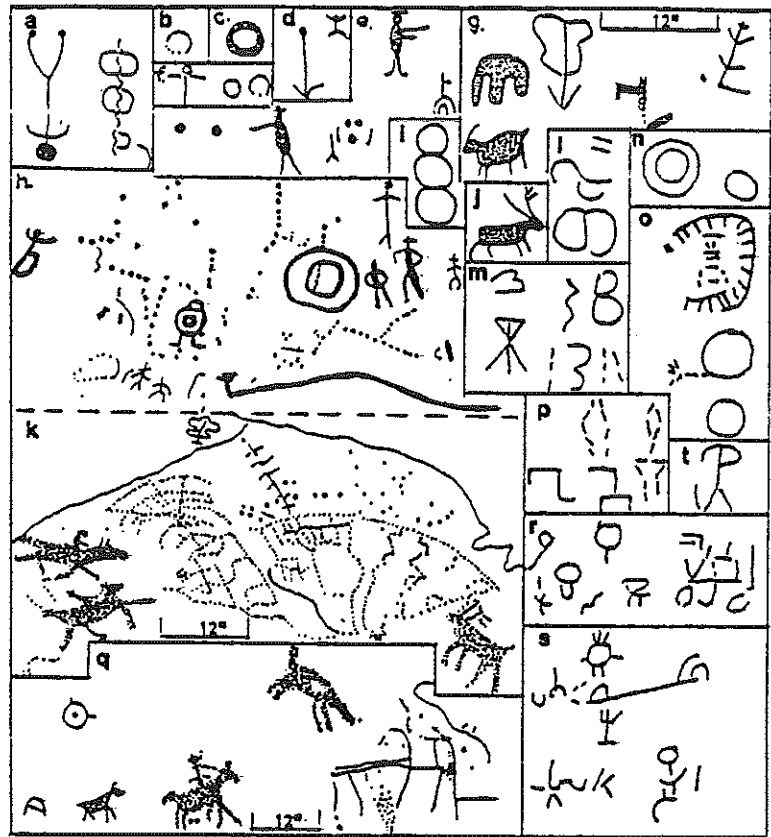 a
b
c.
d
e.
g.
12"
f
i
l
n
h
j
o
m
k
p
t
r
12"
q
s
12"